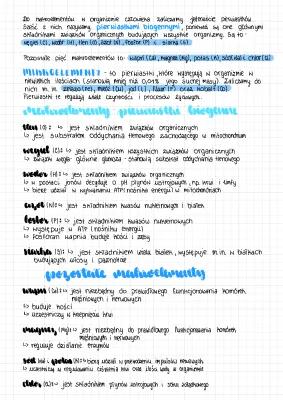 Do makroelementów w organizmie człowieka zaliczamy jedenaście pierwiastków.
Sześć z nich nazywamy pierwiastkami biogennymi, ponieważ są one głównymi
składnikami związków organicznych budujących wszystkie organizmy. Są to:
węgiel (C), wodór (H), tlen (O), azot (N), fosfor (P) i siarka (S).
Pozostałe pięć makroelementów to: wapń (Ca), magnez (Mg), potas (K), sód (Na) i chlor (Cl)
MIKROELEMENTY - to pierwiastki, które występują w organizmie w
niewielkich ilościach (stanowią mniej niż 0,01% jego suchej masy). Zaliczamy do
nich m.in. żelazo (Fe), miedź (Cu), jod (I), fluor (F) oraz kobalt (Co)
Pierwiastki te regulują wiele czynności i procesów życiowych.
makroelementy pierwiastki biogenne
tlen (O): ↳ jest składnikiem związków organicznych
↳ jest substratem oddychania tlenowego zachodzącego w mitochondrium
węgiel (C): ↳ jest składnikiem wszystkich związków organicznych
↳ związki węgla głównie glukoza - stanowią substrat oddychania tlenowego
wodór (H): ↳ jest składnikiem związków organicznych
↳ w postaci jonów decyduje o pH płynów ustrojowych, np. krwi i limfy
↳ bierze udział w wytwarzaniu ATP (nośnika energii) w mitochondrium
azot (N): ↳ jest składnikiem kwasów nukleinowych i białek
fosfor (P): ↳ jest składnikiem kwasów nukleinowych
↳ występuje w ATP (nośniku energii)
↳ fosforan wapnia buduje kości i zęby
siarka (S): ↳ jest składnikiem wielu białek, występuje m.in. w białkach
budujących włosy i paznokcie
pozostałe makroelementy
wapń (Ca): ↳ jest niezbędny do prawidłowego funkcjonowania komórek
mięśniowych i nerwowych
↳ buduje kości
↳ uczestniczy w krzepnięciu krwi
magnez (Mg): ↳ jest niezbędny do prawidłowego funkcjonowania komórek
mięśniowych i nerwowych
↳ reguluje działanie enzymów
sód (Na) i potas (K): ↳ biorą udział w przewodzeniu impulsów nerwowych
↳ uczestniczą w regulowaniu ciśnienia krwi oraz ilości wody w organizmie
chlor (Cl): ↳ jest składnikiem płynów ustrojowych i soku żołądkowego